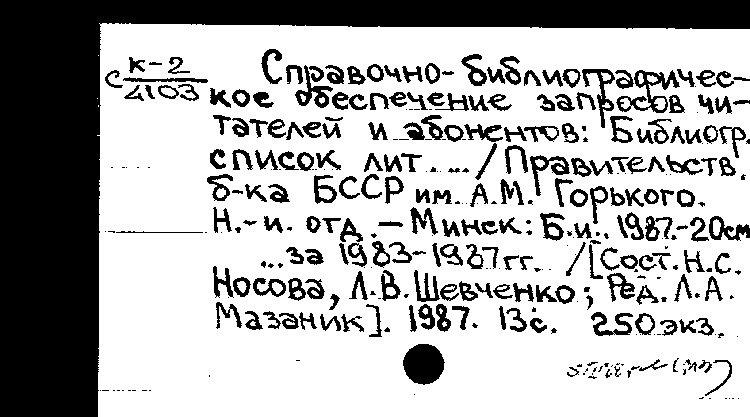 Справочно-библиографичес-
с К-2
4103
кое обеспечение запросов чи-
тателей и абонентов: Библиогр.
список лит. ... / Правительств.
б-ка БССР им. А.М. Горького.
Н.-и. отд. - Минск: Б.и., 1987.-20см
...за 1983-1987гг. /[Сост. Н.С.
Носова, Л.В. Шевченко; Ред. Л.А.
Мазаник]. 1987. 13с. 250экз.